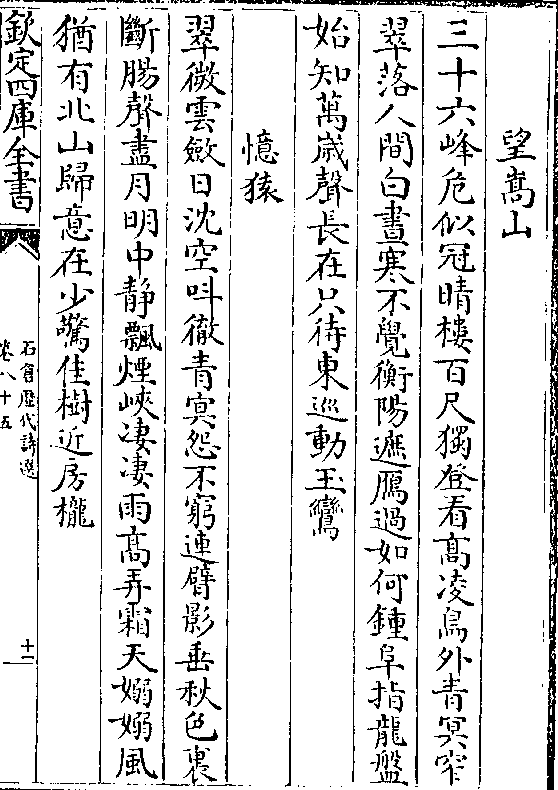 望嵩山
三十六峰危似冠晴樓百尺獨登看髙凌鳥外青冥窄
翠落人間白晝寒不覺衡陽遮鴈過如何鍾阜指龍盤
始知萬歳聲長在只待東巡動玉鸞
憶猿
翠微雲斂日沈空呌徹青冥怨不窮連臂影垂秋色裏
斷腸聲盡月明中静飄煙峽凄凄雨髙弄霜天嫋嫋風
猶有北山歸意在少驚佳樹近房櫳
欽定四庫全書
石倉歴代詩選
卷八十五
十一